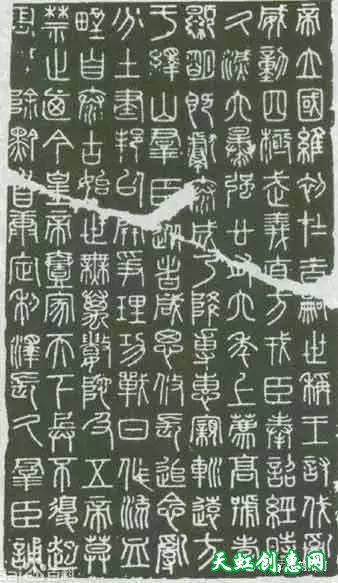 帝立國維初在昔嗣世稱王討伐亂
威動四極武義直方戎臣奉詔經時
久滅六暴強廿有六年上薦高號孝
顯明既獻泰成乃降專惠親巡遠方
于繹山羣臣從者咸思攸長追念亂
分土建邦以開爭理功戰日作流血
野自泰古始世無萬數陀及五帝莫
禁止廼今皇帝壹家天下兵不復起
害滅除黔首康定利澤長久羣臣誦
天虹创意网